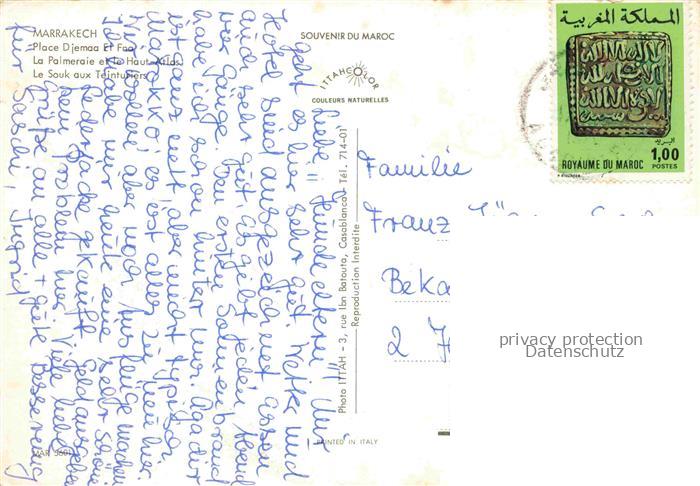 MARRAKECH
Place Djemaa El Fna
La Palmeraie et le Haut Atlas
Le Souk aux Teinturiers
SOUVENIR DU MAROC
ITTAHCOLOR
COULEURS NATURELLES
المملكة المغربية
البريد
1,00
ROYAUME DU MAROC
POSTES
Liebe Freunde eltern!!! Uns
geht es hier sehr gut. Wetter und
Hotel sind ausgezeichnet. Essen
auch sehr gut. Es gibt jeden Abend
vier Gänge. Den ersten Sonnenbrand
habe ich schon hinter mir. Agadir
ist ganz nett, aber nicht typisch
Marokko! es ist alles zu
Wir wollen aber noch Ausflüge machen
Ich habe mir heute eine sehr schöne
Lederjacke gekauft. Geldausgeben
kein Problem hier. Viele liebe
Grüße an alle + gute Besserung
für Saschi, Ingrid
Photo ITTAH - 3, rue Ibn Batouta, Casablanca - Tél. 714-01
Reproduction Interdite
Familie
Franz
Beka
2
privacy protection
Datenschutz
PRINTED IN ITALY
MAR 5601